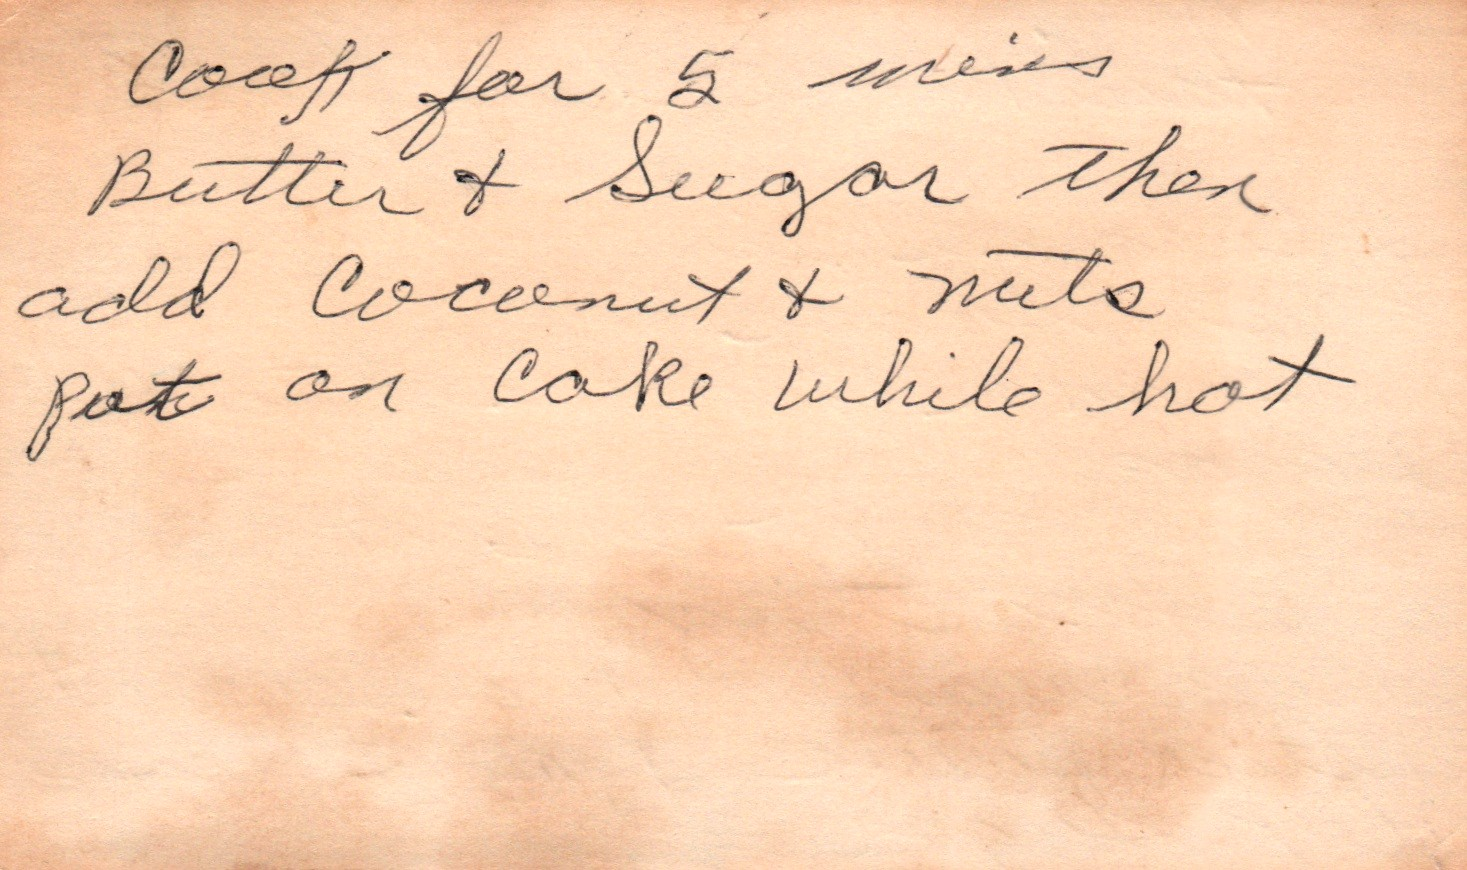 Cook for 5 mins
Butter & Sugar then
add Coconut & nuts
put on Cake while hot